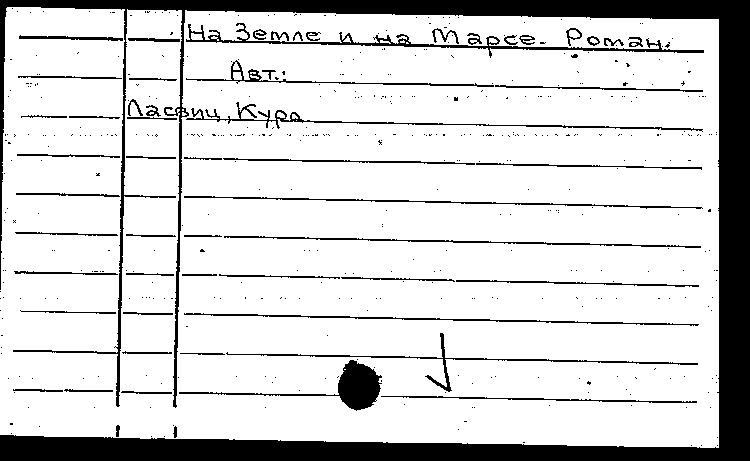 На Земле и на Марсе. Роман.
Авт.:
Ласвиц, Курд